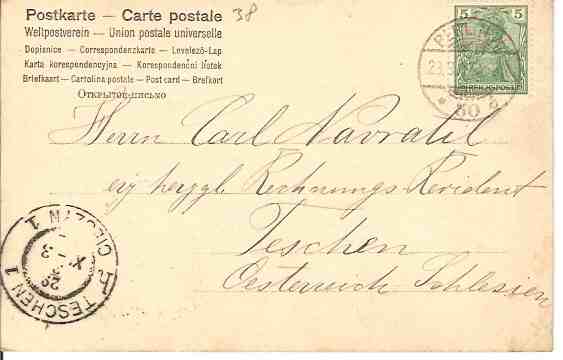 Postkarte — Carte postale
38
Weltpostverein — Union postale universelle
Dopisnice — Correspondenzkarte — Levelező-Lap
Karta korespondencyjna — Korespondenční lístek
Briefkaart — Cartolina postale — Post card — Brefkort
Открытое письмо
5 5
REICHSPOST
Herrn Carl Navratil
erz herzgl. Rechnungs Revident
Teschen
Oesterreich Schlesien
TESCHEN 1
CIESZYN 1